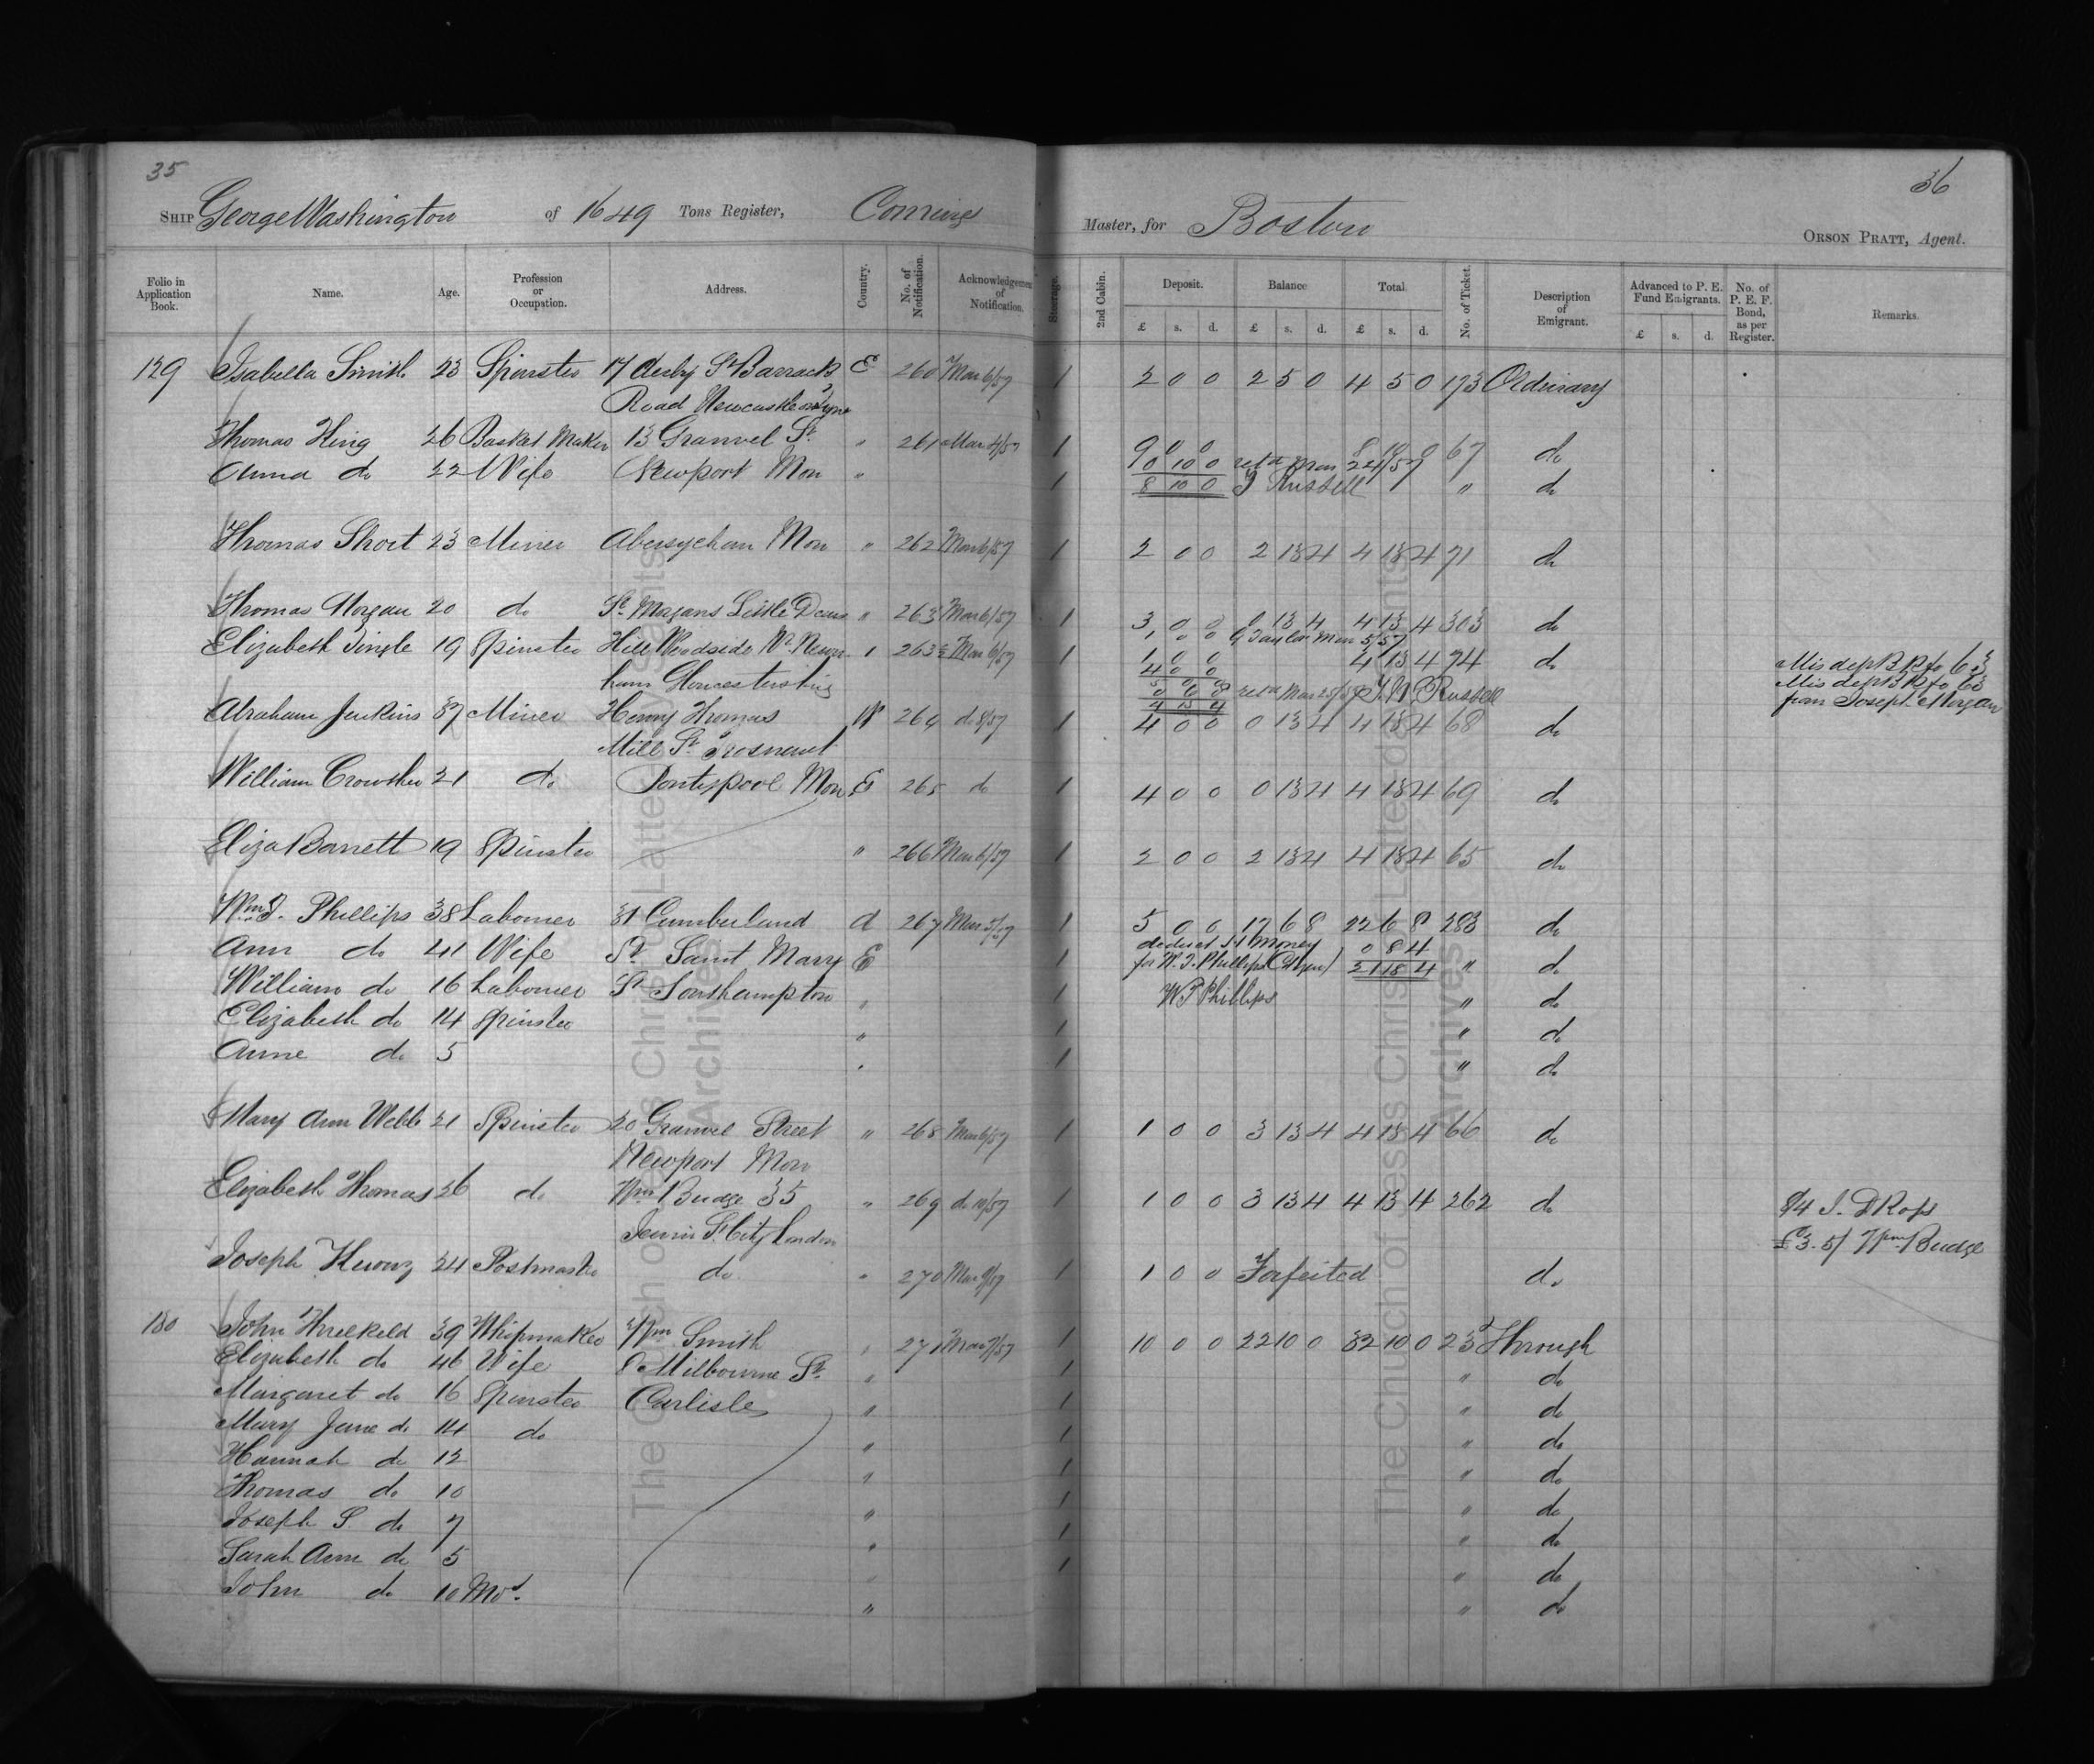 35
36
SHIP George Washington of 1649 Tons Register, Comings Master, for Boston ORSON PRATT, Agent.
Folio in Application Book. Name. Age. Profession or Occupation. Address. Country. No. of Notification. Acknowledgement of Notification. Steerage. 2nd Cabin. Deposit. £ s. d. Balance £ s. d. Total £ s. d. No. of Ticket. Description of Emigrant. Advanced to P. E. Fund Emigrants. £ s. d. No. of P. E. F. Bond, as per Register. Remarks.
129 Isabella Smith 23 Spinster 17 Derby St Barrack E 260 Mar 6/57 1 2 0 0 2 5 0 4 5 0 173 Ordinary
Road Newcastle on Tyne
Thomas King 26 Basket Maker 13 Granvel St. " 261 Mar 4/57 1 9 0 0 8 10 0 67 do
Anna do 22 Wife Newport Mon " 1 0 10 0 retd Mar 24/57 " do
8 10 0 J Russell
Thomas Short 23 Miner Abersychan Mon " 262 Mar 6/57 1 2 0 0 2 13 4 4 13 4 71 do
Thomas Morgan 20 do Little Dean " 263 Mar 6/57 1 3 0 0 0 13 4 4 13 4 303 do
1 0 0 G Taylor Mar 5/57
Elizabeth Tingle 19 Spinster Hill Woodside Nr. Newn- " 263½ Mar 6/57 1 1 0 0 4 13 4 74 do
4 0 0
ham Gloucestershire
5 0 0
0 6 8 retd Mar 25/57 J. W. Russell
4 13 4
Mis dep B R fo 63
Mis dep B R fo 63
from Joseph Morgan
Abraham Jenkins 37 Miner Henry Thomas W 264 do 8/57 1 4 0 0 0 13 4 4 13 4 68 do
Mill St. Trosnant
William Crowther 21 do Pontypool Mon E 265 do 1 4 0 0 0 13 4 4 13 4 69 do
Eliza Barrett 19 Spinster " 266 Mar 6/57 1 2 0 0 2 13 4 4 13 4 65 do
Wm. J. Phillips 38 Labourer 31 Cumberland A 267 Mar 5/57 1 5 0 0 17 6 8 22 6 8 283 do
deduct Hd money 0 8 4
Ann do 41 Wife St. Saint Mary E 1 for W. J. Phillips (Citizen) 21 18 4 " do
William do 16 Labourer St Southampton " 1 W J Phillips " do
Elizabeth do 14 Spinster " 1 " do
Anne do 5 " 1 " do
Mary Ann Webb 21 Spinster 20 Granvel Street " 268 Mar 6/57 1 1 0 0 3 13 4 4 13 4 66 do
Newport Mon
Elizabeth Thomas 26 do Wm Budge 35 " 269 do 10/57 1 1 0 0 3 13 4 4 13 4 262 do 8/4 J. D Ross
Jewin St. City London £3. 5/ Wm Budge
Joseph 24 Postmaster do " 270 Mar 9/57 1 1 0 0 Forfeited do
130 John Threlkeld 39 Whipmaker Wm Smith " 271 Mar 7/57 1 10 0 0 22 10 0 32 10 0 23 Through
Elizabeth do 46 Wife 8 Milbourne St. " 1 " do
Margaret do 16 Spinster Carlisle " 1 " do
Mary Jane do 14 do " 1 " do
Hannah do 12 " 1 " do
Thomas do 10 " 1 " do
Joseph S. do 7 " 1 " do
Sarah Ann do 5 " 1 " do
John do 10 Mos. " " do